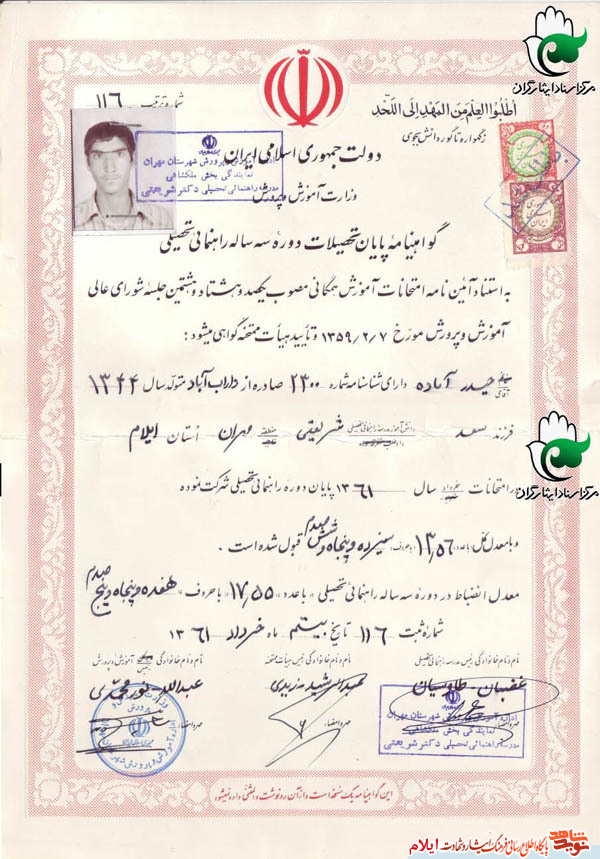 مرکز اسناد ایثارگران
شماره ترتیب ۱۱۶
اُطلُبُوا العِلمَ مِنَ المَهدِ اِلَی اللَّحَد
زگهواره تا گور دانش بجوی
دولت جمهوری اسلامی ایران
وزارت آموزش و پرورش
اداره آموزش و پرورش شهرستان مهران
نمایندگی بخش ملکشاهی
مدرسه راهنمائی تحصیلی دکتر شریعتی
گواهینامهٔ پایان تحصیلات دورهٔ سه ساله راهنمائی تحصیلی
به استناد آئین نامه امتحانات آموزش همگانی مصوب یکصد و هشتاد و هشتمین جلسه شورای عالی
آموزش و پرورش مورخ ۱۳۵۹/۲/۷ و تأیید هیأت ممتحنه گواهی میشود:
آقای حیدر آماده دارای شناسنامه شماره ۲۳۰۰ صادره از داراب آباد متولد سال ۱۳۴۴
فرزند سعد دانش آموز مدرسه راهنمائی تحصیلی شریعتی منطقه مهران استان ایلام
در امتحانات خرداد سال ۱۳۶۱ پایان دوره راهنمائی تحصیلی شرکت نموده
و با معدل کل (با عدد) ۱۳/۵۶ (با حروف) سیزده و پنجاه و شش صدم قبول شده است.
معدل انضباط در دوره سه ساله راهنمائی تحصیلی «با عدد» ۱۷/۵۵ «با حروف» هفده و پنجاه و پنج صدم
شماره ثبت ۱۱۶ تاریخ بیستم ماه خرداد ۱۳۶۱
نام و نام خانوادگی رئیس مدرسه راهنمائی تحصیلی
نام و نام خانوادگی رئیس هیأت ممتحنه
نام و نام خانوادگی رئیس آموزش و پرورش
غضبان طاوسیان
عبدالله نورمحمدی
مهر و امضاء
مهر و امضاء
مهر و امضاء
اداره آموزش و پرورش شهرستان مهران
نمایندگی بخش ملکشاهی
مدرسه راهنمائی تحصیلی دکتر شریعتی
مرکز اسناد ایثارگران
این گواهینامه یک نسخه است و از آن رونوشت و المثنی داده نمیشود
نوید شاهد
پایگاه اطلاع رسانی فرهنگ ایثار و شهادت ایلام